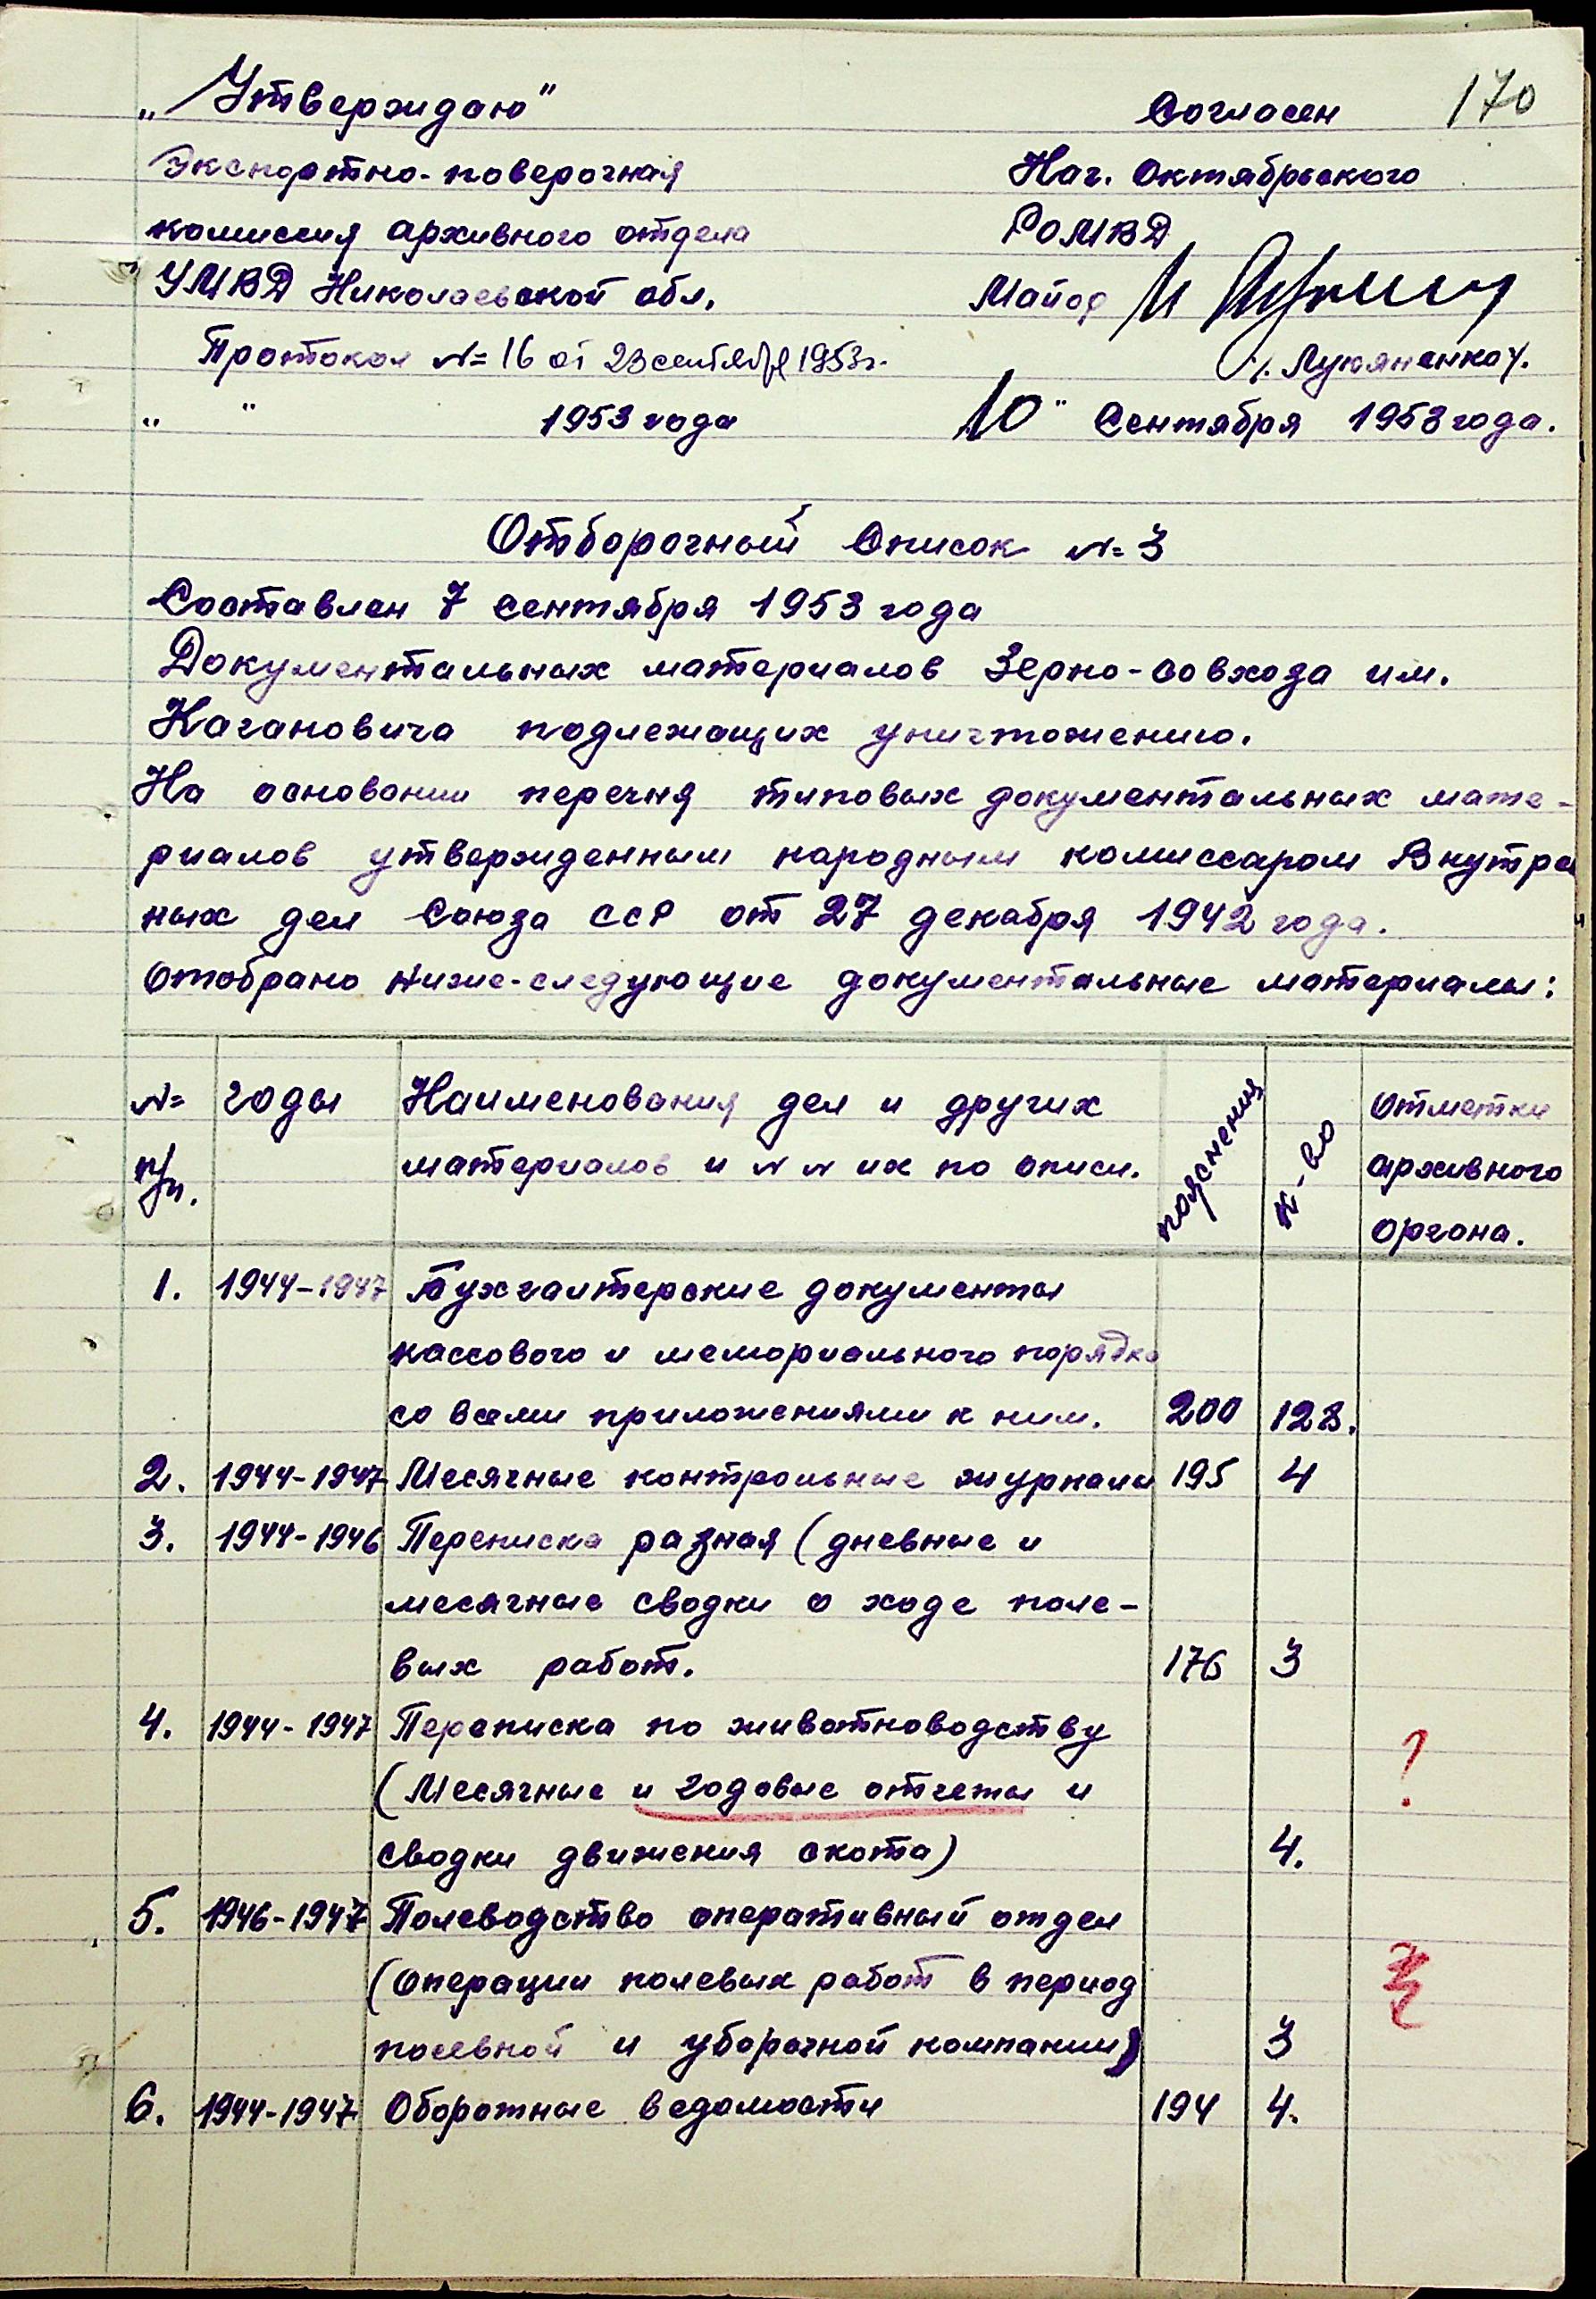 170
„Утверждаю"
Экспортно-поверочная
комиссия архивного отдела
УМВД Николаевской обл.
Протокол №=16 от 23 сентября 1953г.
"   "   1953 года
Согласен
Нач. Октябрьского
РОМВД
Майор
/. Лукяненко /.
10" Сентября 1953 года.
Отборочный Список №=3
Составлен 7 Сентября 1953 года
Документальных материалов Зерно-совхоза им.
Кагановича подлежащих уничтожению.
На основании перечня типовых документальных мате-
риалов утвержденным народным комиссаром Внутре
ных дел Союза ССР от 27 декабря 1942 года.
Отобрано ниже-следующие документальные материалы:
№= п/п. | годы | Наименования дел и других | пояснения | к-во | Отметки
материалов и № № их по описи. | архивного
органа.
1. 1944-1947 Бухгалтерские документы
кассового и мемориального порядка
со всеми приложениями к ним. 200 128.
2. 1944-1947 Месячные контрольные журналы 195 4
3. 1944-1946 Переписка разная (дневные и
месячные сводки о ходе поле-
вых работ. 176 3
4. 1944-1947 Переписка по животноводству
(Месячные и годовые отчеты и ?
сводки движения скота) 4.
5. 1946-1947 Полеводство оперативный отдел
(Операции полевых работ в период
посевной и уборочной компании) 3
6. 1944-1947 Оборотные ведомости 194 4.